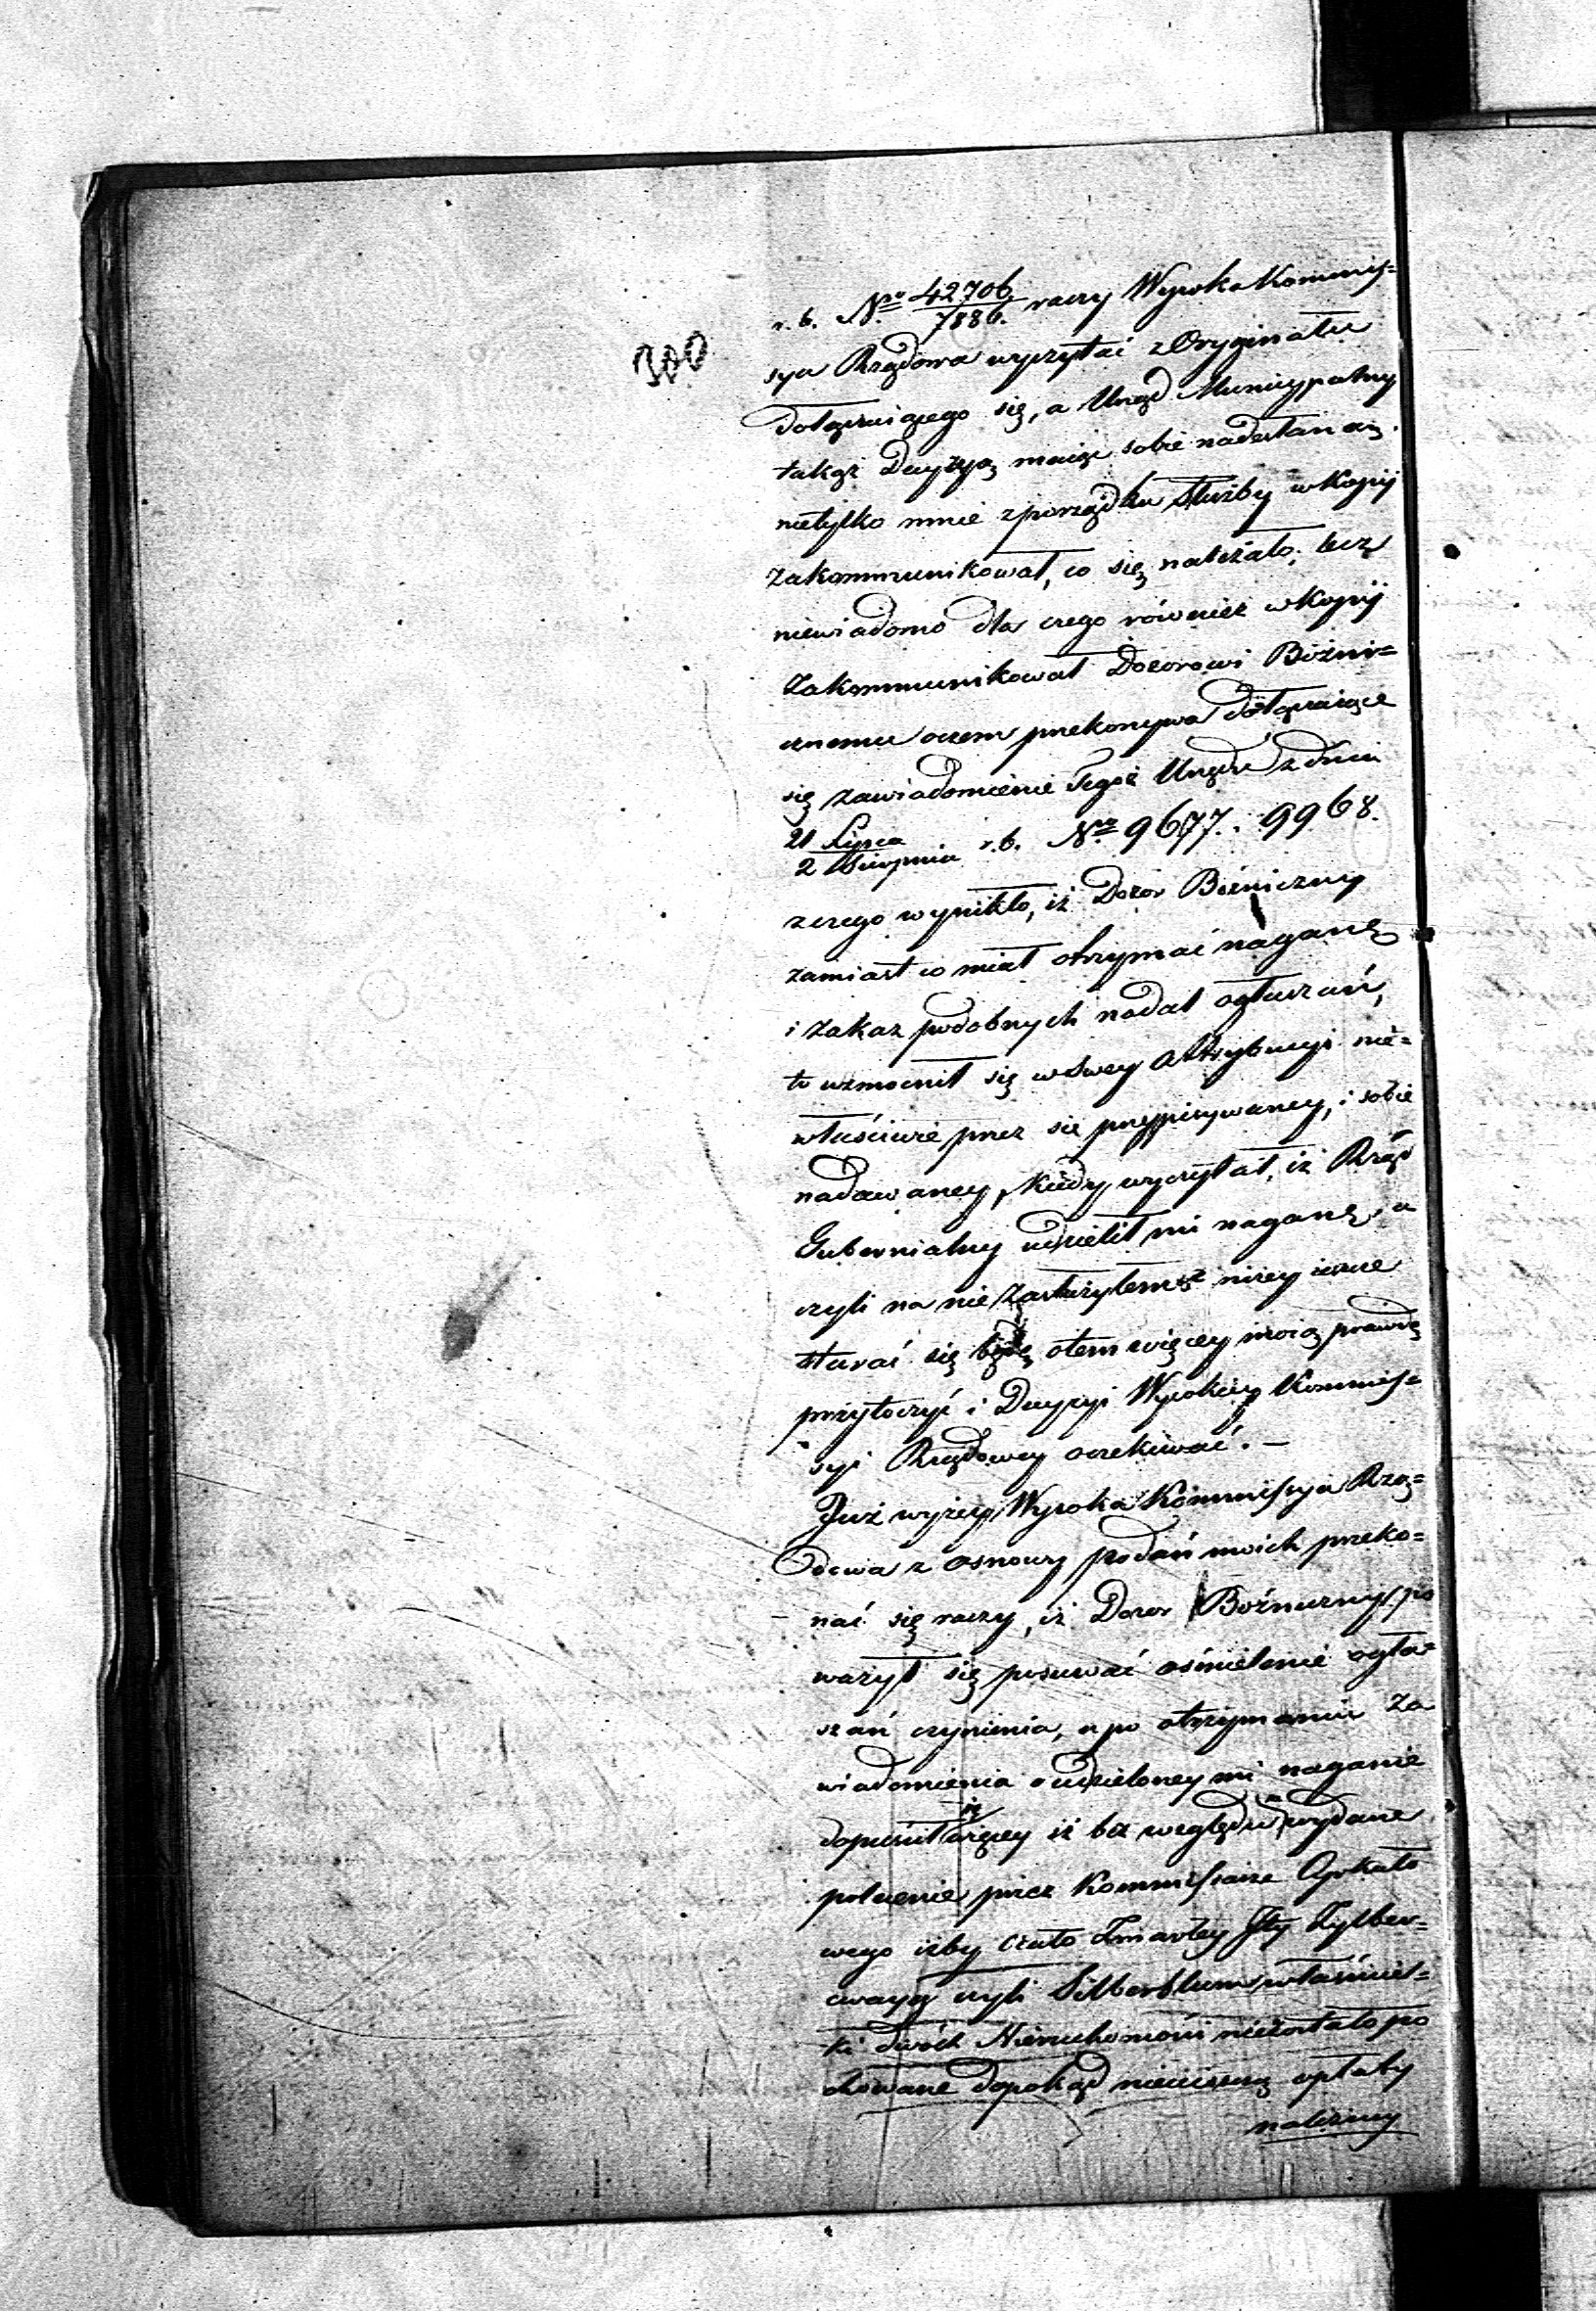 300
r. b. Nro 42706/7886. raczy Wysoka Kommis=
sya Rządowa wyczytać z Oryginału
dołączaiącego się, a Urząd Municypalny
takąż Decyzyą maiąc sobie nadesłaną
nietylko mnie z porządku służby w Kopij
zakommunikował, co się należało, lecz
niewiadomo dla czego również w Kopij
Zakommunikował Dozorowi Bóżni=
cznemu oczem przekonywa dołączaiące
się zawiadomienie tegoż Urzędu z dnia
21 Lipca/2 Sierpnia r. b. Nro 9677. 9968.
z czego wynikło, iż Dozor Bóżniczny
zamiast co miał otrzymać naganę
i zakaz podobnych nadal ogłaszań,
to wzmocnił się w swey Attrybucyi nie=
właściwie przez się przypisywaney, i sobie
nadawaney, kiedy wyczytał, iż Rząd
Gubernialny udzielił mi naganę, a
czyli na nie zasłużyłem niżey ieszcze
starać się będę otem więcey moią prawdę
przytoczyć i Decyzyi Wysokiey Kommis=
syi Rządowey oczekiwać. —
Już wyżey Wysoka Kommissya Rzą=
dowa z osnowy podań moich przeko=
nać się raczy, iż Dozor Bóżniczny po
ważył się posuwać ośmielenie ogła=
szań czynienia, a po otrzymaniu za
wiadomienia o udzieloney mi naganie
dopuścił się więcey iż bez względu na wydane
polecenie przez Kommissarza Cyrkuło
wego iżby Ciało Zmarłey Ity Zylber=
cwayg czyli Silberblum właściciel=
ki dwóch Nieruchomości niezostało po
chowane dopokąd nieuiszczą opłaty
należney